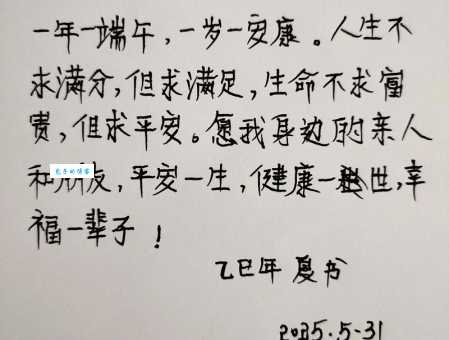 一年一端午，一岁一安康。人生不
求满分，但求满足，生命不求富
贵，但求平安。愿我身边的亲人
和朋友，平安一生，健康一世，幸
福一辈子！
乙巳年 夏书
2025.5-31